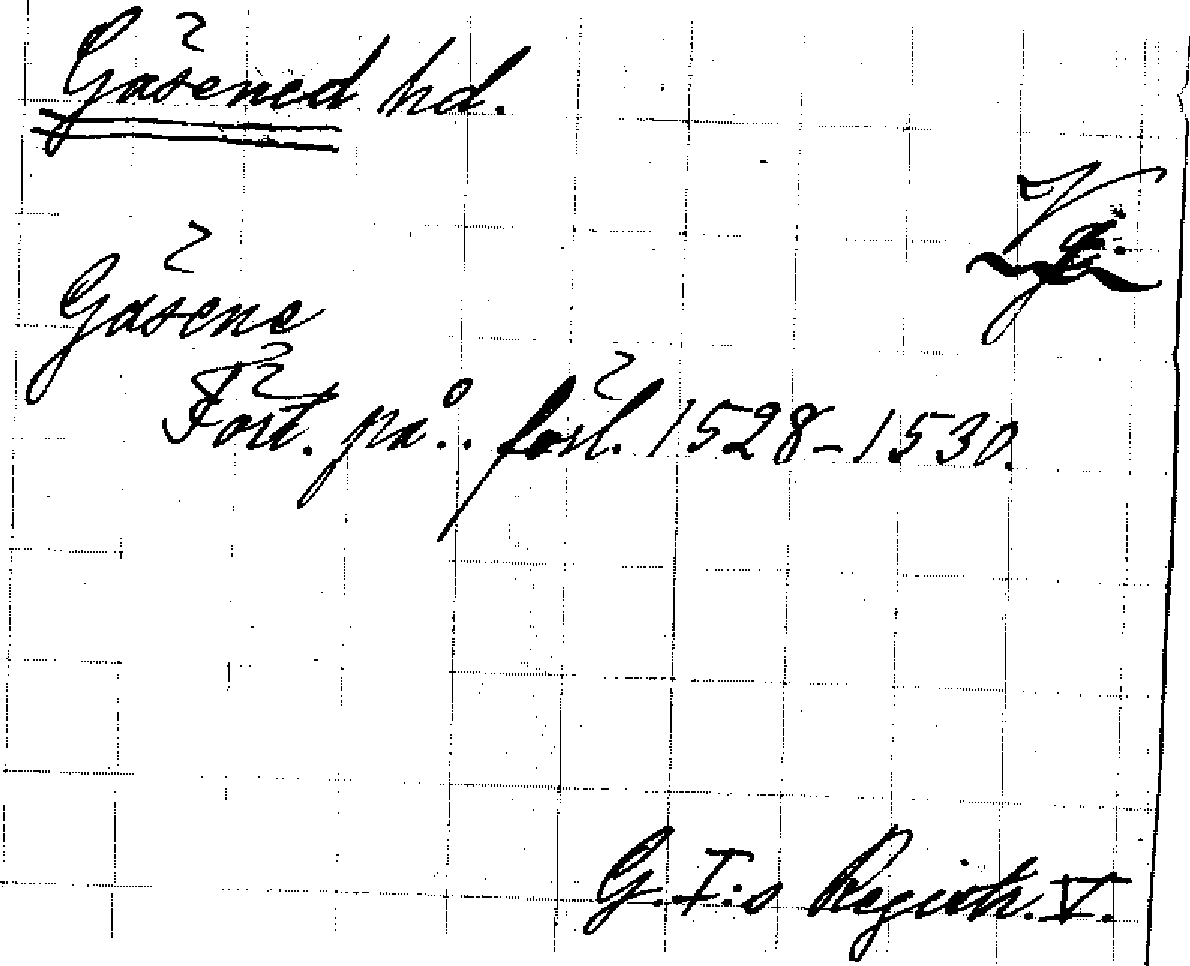 Gäsened hd.
Vg.
Gäsene
Fört. på .. förl. 1528-1530.
G. I:s Registr. V.